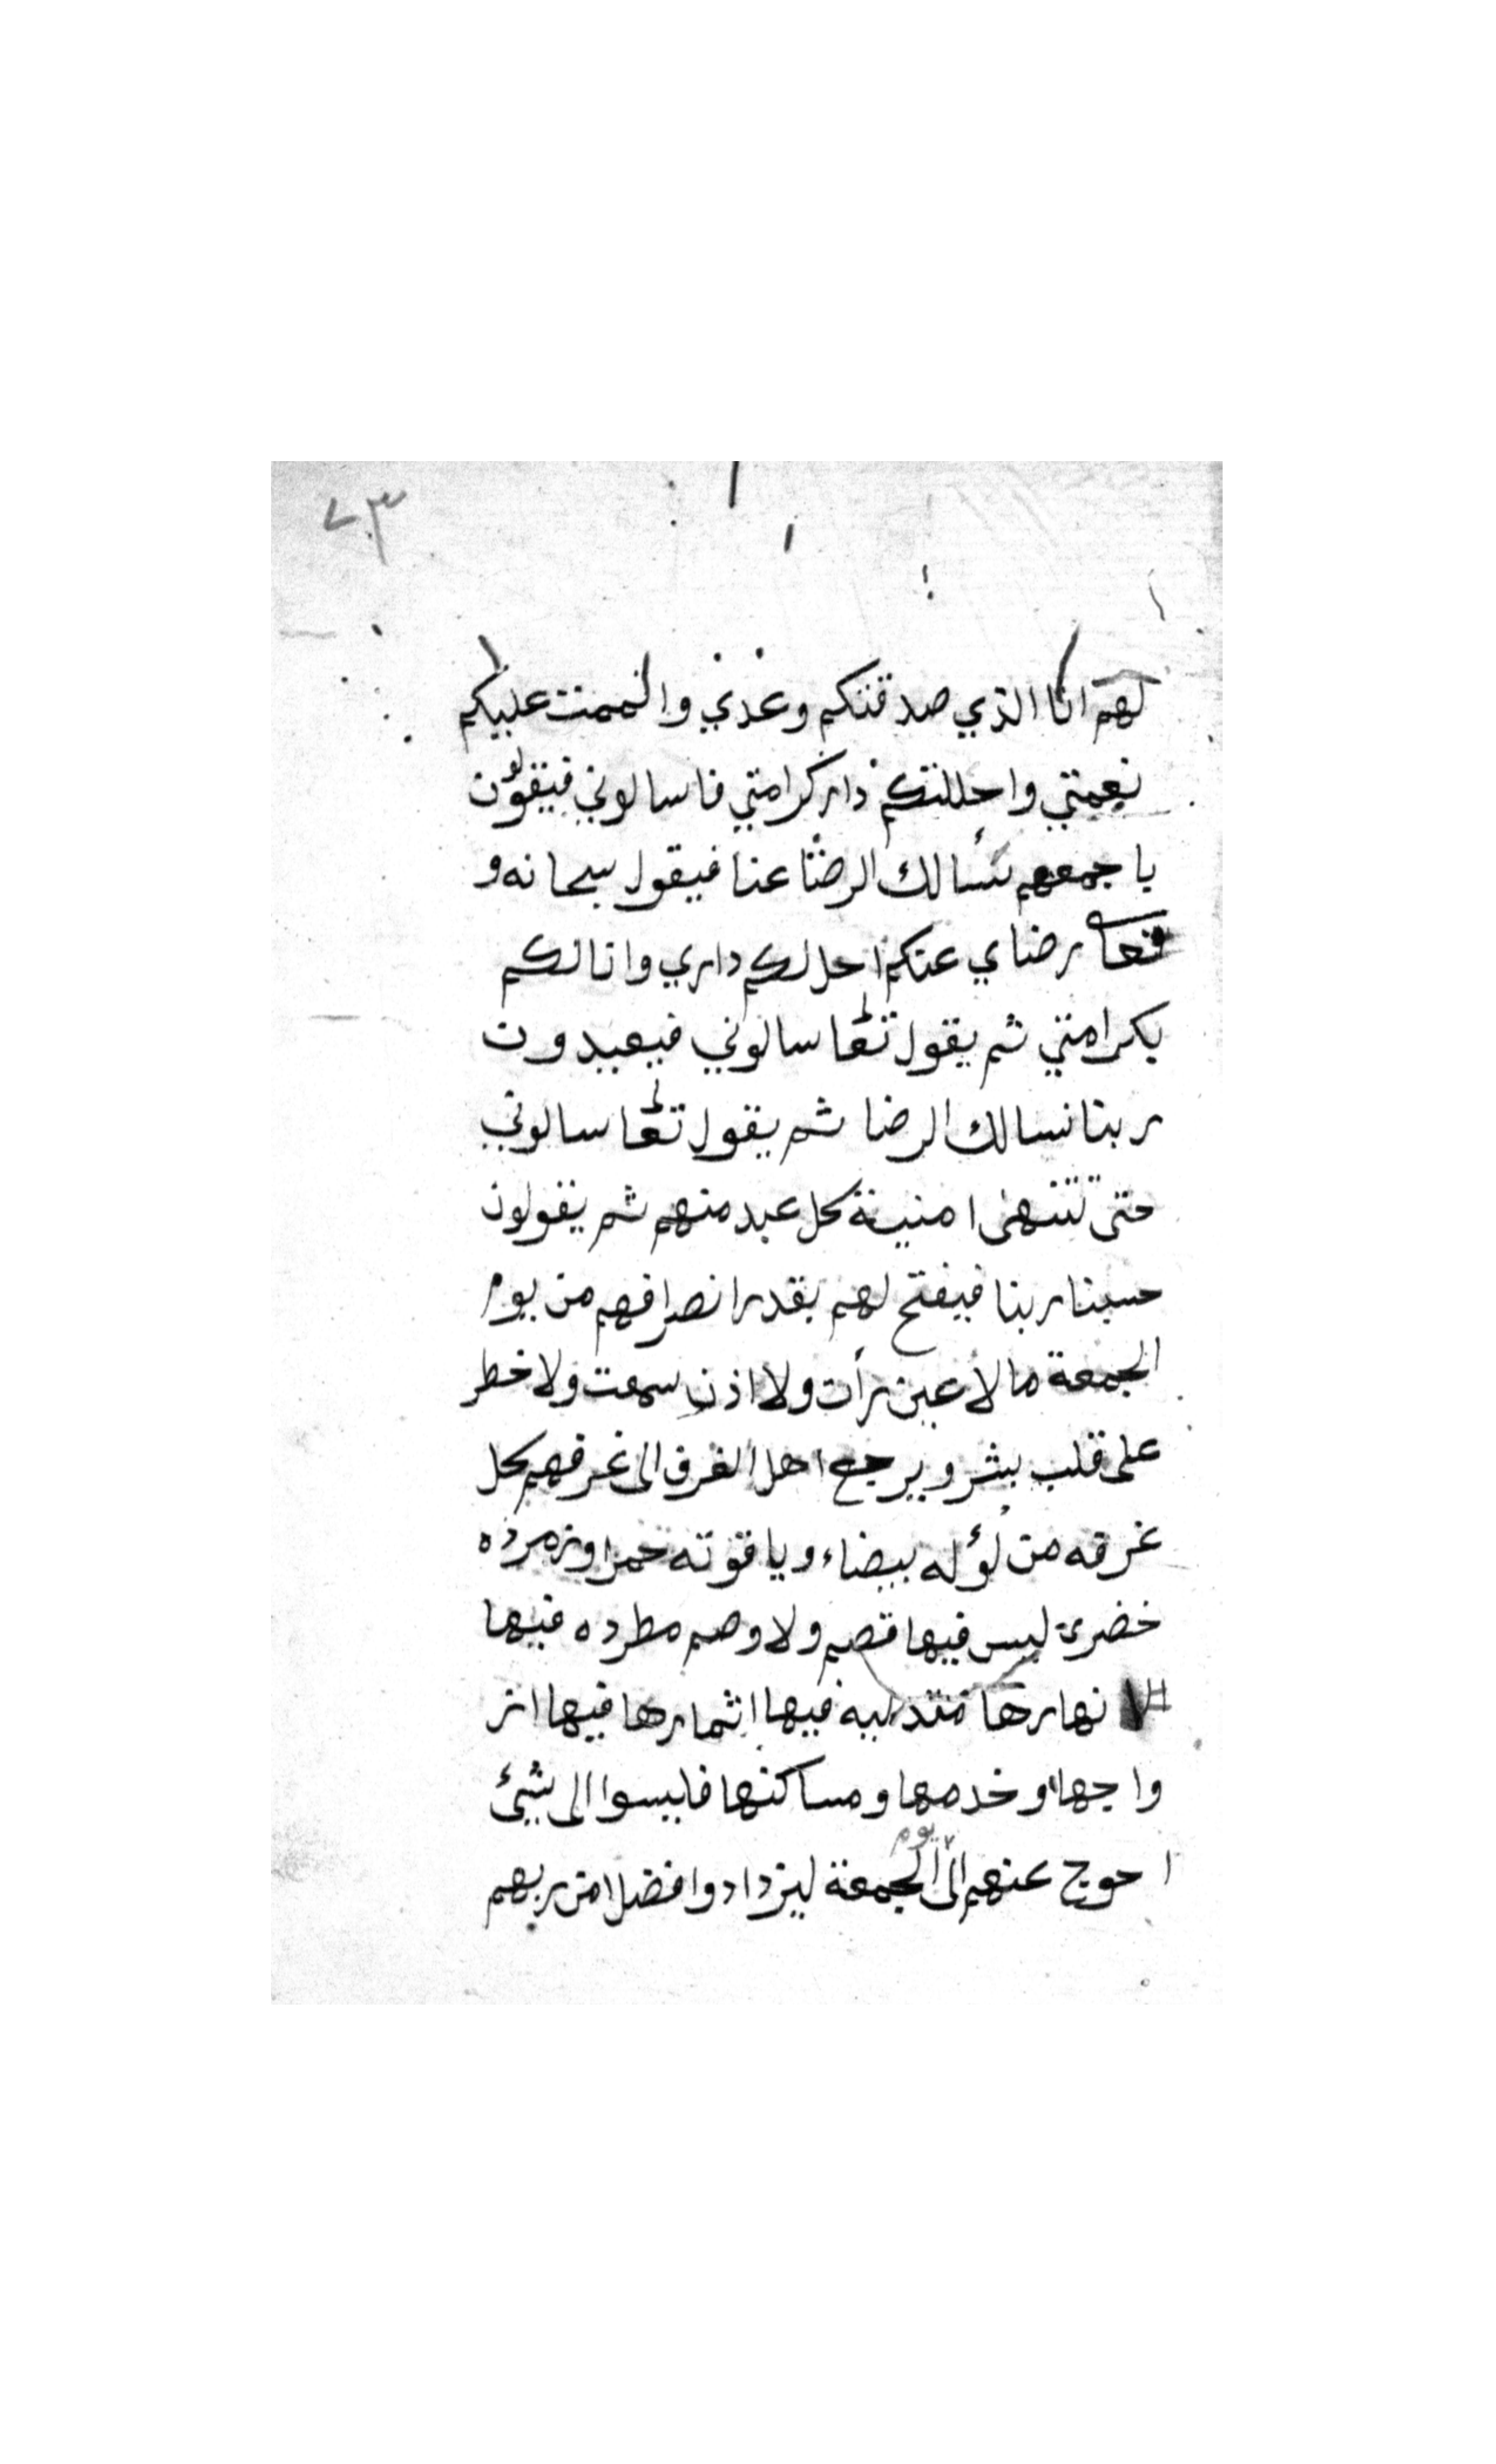 ٧٣
لهم انا الذي صدقتكم وعدي واتممت عليكم
نعمتي واحللتكم دار كرامتي فاسالوني فيقولون
يا جمعهم نسألك الرضا عنا فيقول سبحانه و
تعا رضاي عنكم احللكم داري وانالكم
بكرامتي ثم يقول تعالى سالوني فيعيدون
ربنا نسالك الرضا ثم يقول تعالى سالوني
حتى تنتهى امنية كل عبد منهم ثم يقولون
حسبنا ربنا فيفتح لهم بقدر انصرافهم من يوم
الجمعة ما لا عين رأت ولا اذن سمعت ولا خطر
على قلب بشر ويرجع اهل الغرف الى غرفهم كل
غرفه من لؤله بيضاء وياقوته حمرا وزمرده
خضرة ليس فيها قصم ولا وصم مطرده فيها
انهارها متدليه فيها اثمارها فيها از
واجها وخدمها ومساكنها فليسوا الى شيئ
احوج عنهم الى يوم الجمعة ليزدادوا فضلا من ربهم